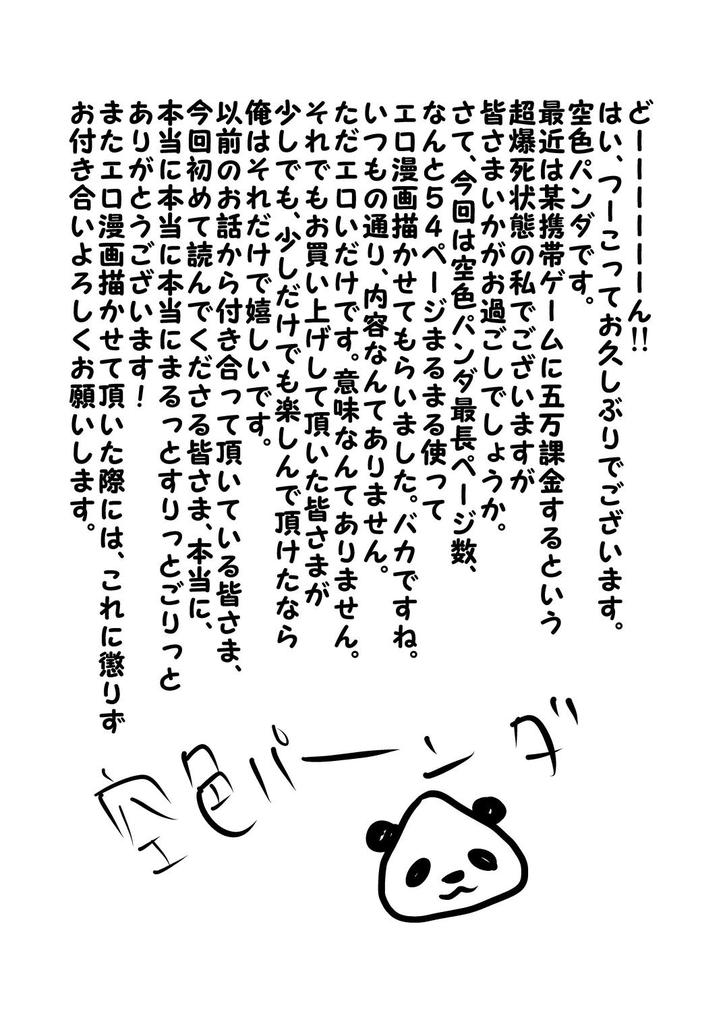 どーーーーーーん!!
はい、つーこってお久しぶりでございます。
空色パンダです。
最近は某携帯ゲームに五万課金するという
超爆死状態の私でございますが
皆さまいかがお過ごしでしょうか。
さて、今回は空色パンダ最長ページ数、
なんと５４ページまるまる使って
エロ漫画描かせてもらいました。バカですね。
いつもの通り、内容なんてありません。
ただエロいだけです。意味なんてありません。
それでもお買い上げして頂いた皆さまが
少しでも、少しだけでも楽しんで頂けたなら
俺はそれだけで嬉しいです。
以前のお話から付き合って頂いている皆さま、
今回初めて読んでくださる皆さま、本当に、
本当に本当に本当にまるっとすりっとごりっと
ありがとうございます！
またエロ漫画描かせて頂いた際には、これに懲りず
お付き合いよろしくお願いします。
空色パーンダ